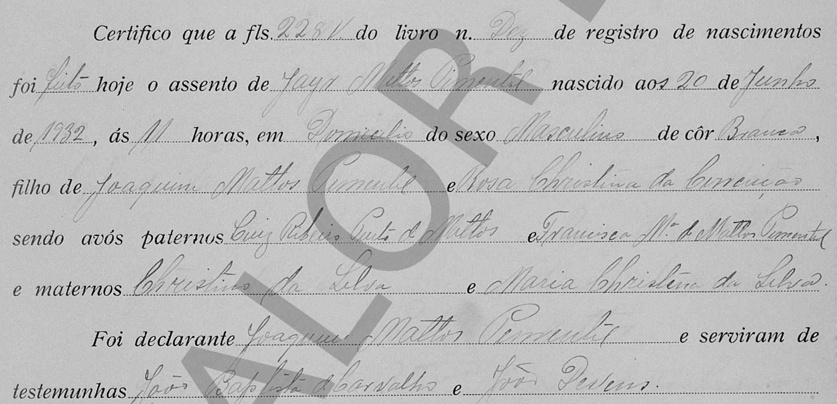 Certifico que a fls. 228 V. do livro n. Dez de registro de nascimentos
foi feito hoje o assento de Jayr Mattos Pimentel nascido aos 20 de Junho
de 1932, ás 11 horas, em Domicilio do sexo Masculino de côr Branca,
filho de Joaquim Mattos Pimentel e Rosa Christina da Conceição
sendo avós paternos Luiz Ribeiro Pinto de Mattos e Francisca Mª de Mattos Pimentel
e maternos Christino da Silva e Maria Christina da Silva.
Foi declarante Joaquim Mattos Pimentel e serviram de
testemunhas João Baptista de Carvalho e João
VALOR